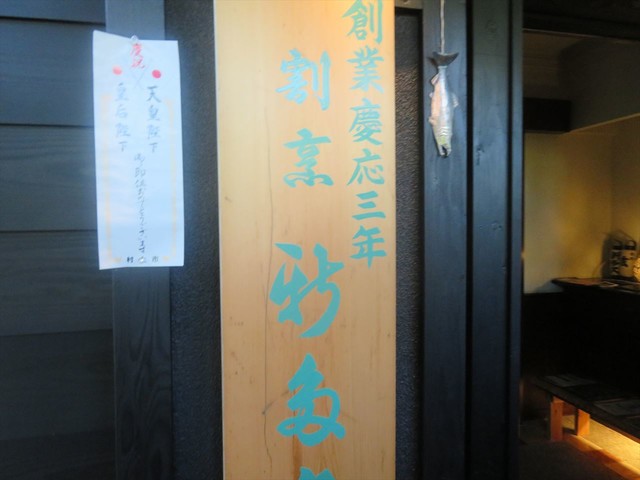 創業慶応三年
割烹 新多久
慶祝
天皇陛下
皇后陛下
村上市